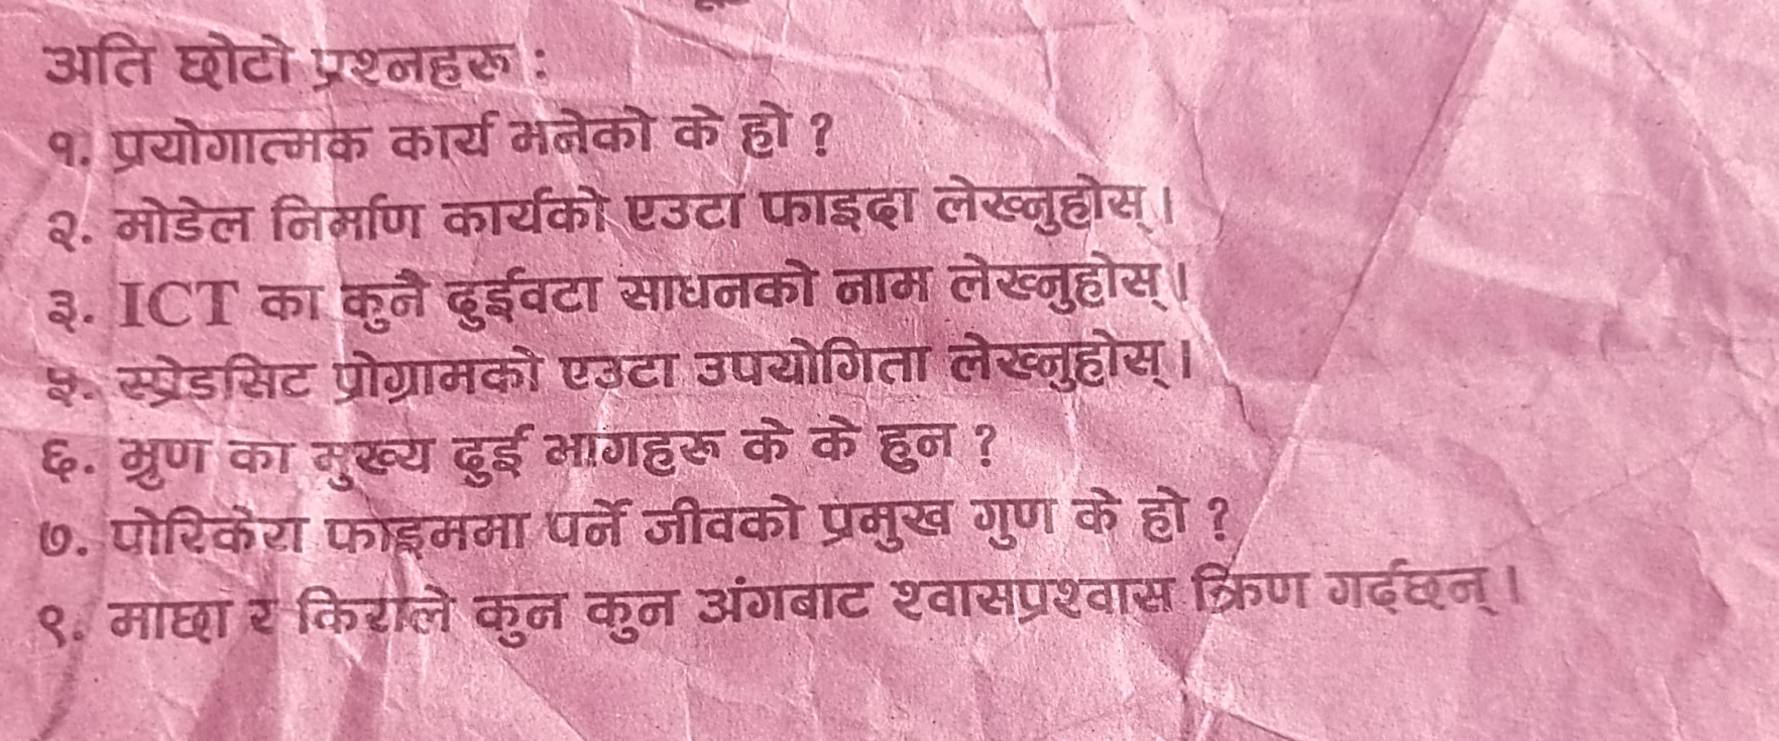 अति छोटो प्रश्नहरू :
१. प्रयोगात्मक कार्य भनेको के हो ?
२. मोडेल निर्माण कार्यको एउटा फाइदा लेख्नुहोस् ।
३. ICT का कुनै दुईवटा साधनको नाम लेख्नुहोस् ।
५. स्प्रेडसिट प्रोग्रामको एउटा उपयोगिता लेख्नुहोस् ।
६. भ्रुण का मुख्य दुई भागहरू के के हुन ?
७. पोरिफेरा फाइममा पर्ने जीवको प्रमुख गुण के हो ?
९. माछा र किराले कुन कुन अंगबाट श्वासप्रश्वास क्रिण गर्दछन् ।